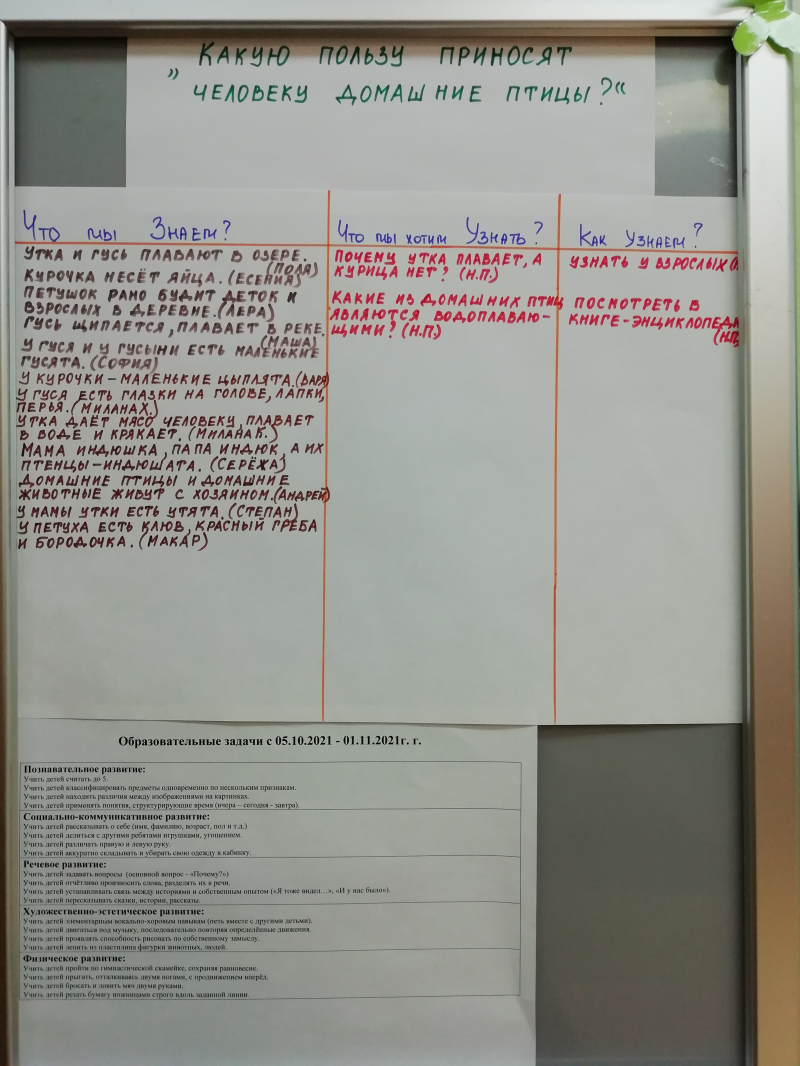 „ Какую пользу приносят
человеку домашние птицы?“
Что мы Знаем?
Утка и гусь плавают в озере.
(Поля)
Курочка несёт яйца. (Есения)
Петушок рано будит деток и
взрослых в деревне. (Лера)
Гусь щипается, плавает в реке.
(Маша)
У гуся и у гусыни есть маленькие
гусята. (София)
У курочки – маленькие цыплята. (Варя)
У гуся есть глазки на голове, лапки,
перья. (Милана Х.)
Утка даёт мясо человеку, плавает
в воде и крякает. (Милана К.)
Мама индюшка, папа индюк, а их
птенцы – индюшата. (Серёжа)
Домашние птицы и домашние
животные живут с хозяином. (Андрей)
У мамы утки есть утята. (Степан)
У петуха есть клюв, красный греба
и бородочка. (Макар)
Что мы хотим Узнать?
Почему утка плавает, а
курица нет? (Н.П.)
Какие из домашних птиц
являются водоплаваю-
щими? (Н.П)
Как Узнаем?
Узнать у взрослых
Посмотреть в
книге-энциклопед
(Н.П
Образовательные задачи с 05.10.2021 - 01.11.2021г. г.
Познавательное развитие:
Учить детей считать до 5.
Учить детей классифицировать предметы одновременно по нескольким признакам.
Учить детей находить различия между изображениями на картинках.
Учить детей применять понятия, структурирующие время (вчера – сегодня - завтра).
Социально-коммуникативное развитие:
Учить детей рассказывать о себе (имя, фамилию, возраст, пол и т.д.)
Учить детей делиться с другими ребятами игрушками, угощением.
Учить детей различать правую и левую руку.
Учить детей аккуратно складывать и убирать свою одежду в кабинку.
Речевое развитие:
Учить детей задавать вопросы (основной вопрос - «Почему?»)
Учить детей отчётливо произносить слова, разделять их в речи.
Учить детей устанавливать связь между историями и собственным опытом («Я тоже видел…», «И у нас было»).
Учить детей пересказывать сказки, истории, рассказы.
Художественно-эстетическое развитие:
Учить детей элементарным вокально-хоровым навыкам (петь вместе с другими детьми).
Учить детей двигаться под музыку, последовательно повторяя определённые движения.
Учить детей проявлять способность рисовать по собственному замыслу.
Учить детей лепить из пластилина фигурки животных, людей.
Физическое развитие:
Учить детей пройти по гимнастической скамейке, сохраняя равновесие.
Учить детей прыгать, отталкиваясь двумя ногами, с продвижением вперёд.
Учить детей бросать и ловить мяч двумя руками.
Учить детей резать бумагу ножницами строго вдоль заданной линии.